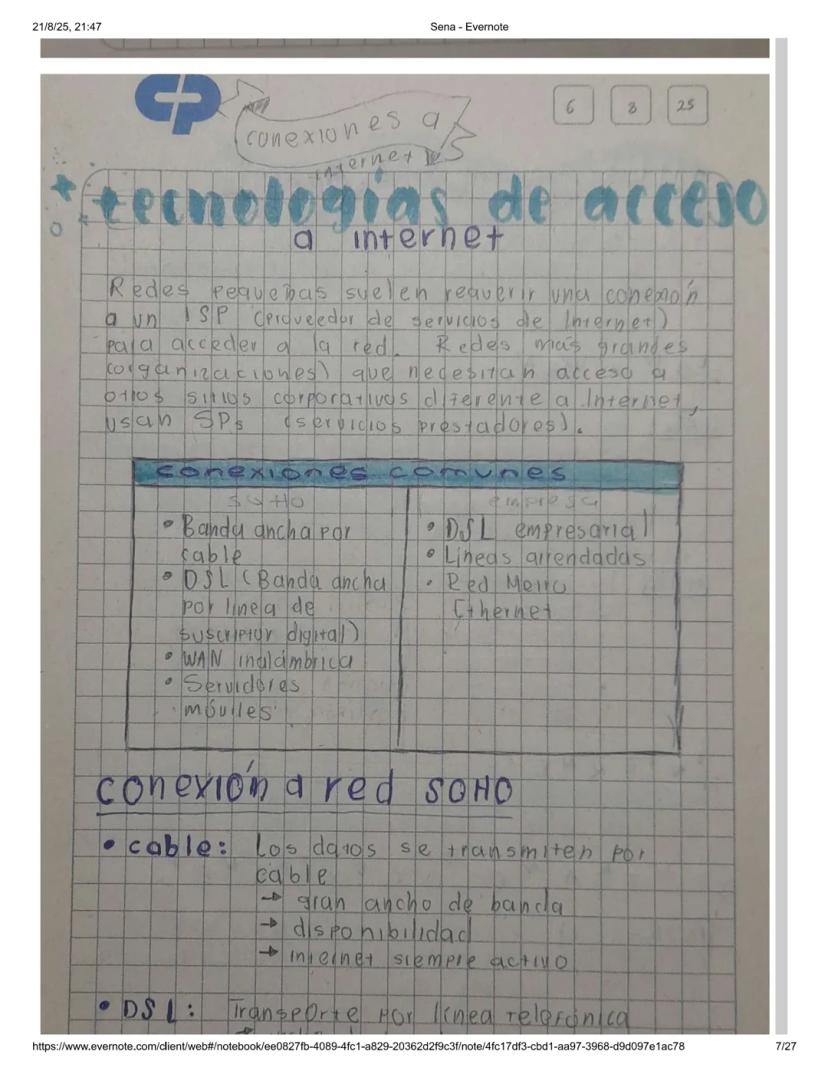 21/8/25, 21:47
Sena - Evernote
conexiones a
internet
6 8 25
tecnologías de acceso
a internet
Redes pequeñas suelen requerir una conexión
a un ISP (proveedor de servicios de Internet)
para acceder a la red. Redes más grandes
(organizaciones) que necesitan acceso a
otros sitios corporativos diferente a Internet,
usan SPs (servicios prestadores).
conexiones comunes
SOHO
empresa
• Banda ancha por
cable
• DSL (Banda ancha
por linea de
suscriptor digital)
• WAN inalámbrica
• Servidores
móviles
• DSL empresarial
• Líneas arrendadas
• Red Metro
Ethernet
conexión a red SOHO
• cable: Los datos se transmiten por
cable
→ gran ancho de banda
→ disponibilidad
→ internet siempre activo
• DSL: Transporte por línea telefónica
https://www.evernote.com/client/web#/notebook/ee0827fb-4089-4fc1-a829-20362d2f9c3f/note/4fc17df3-cbd1-aa97-3968-d9d097e1ac78
7/27